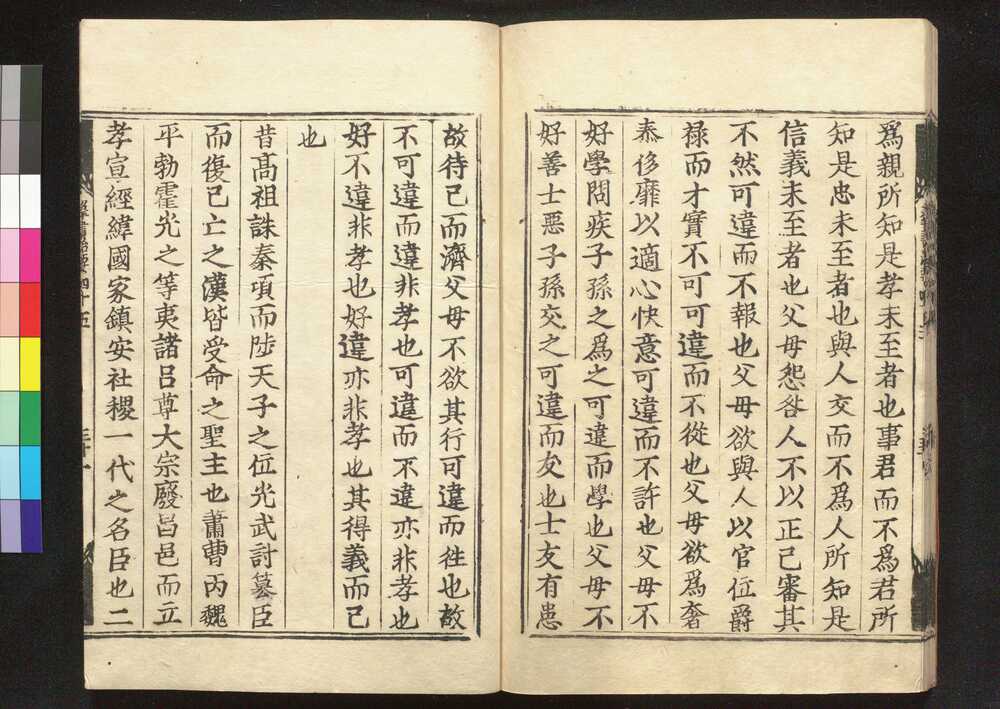 爲親所知是孝未至者也事君而不爲君所
知是忠未至者也與人交而不爲人所知是
信義未至者也父母怨咎人不以正己審其
不然可違而不報也父母欲與人以官位爵
祿而才實不可可違而不從也父母欲爲奢
泰侈靡以適心快意可違而不許也父母不
好學問疾子孫之爲之可違而學也父母不
好善士惡子孫交之可違而友也士友有患
故待己而濟父母不欲其行可違而徃也故
不可違而違非孝也可違而不違亦非孝也
好不違非孝也好違亦非孝也其得義而已
也
昔髙祖誅秦項而陟天子之位光武討簒臣
而復已亡之漢皆受命之聖主也蕭曹丙魏
平勃霍光之等夷諸呂尊大宗廢昌邑而立
孝宣經緯國家鎮安社稷一代之名臣也二
群書治要四十五
三十一